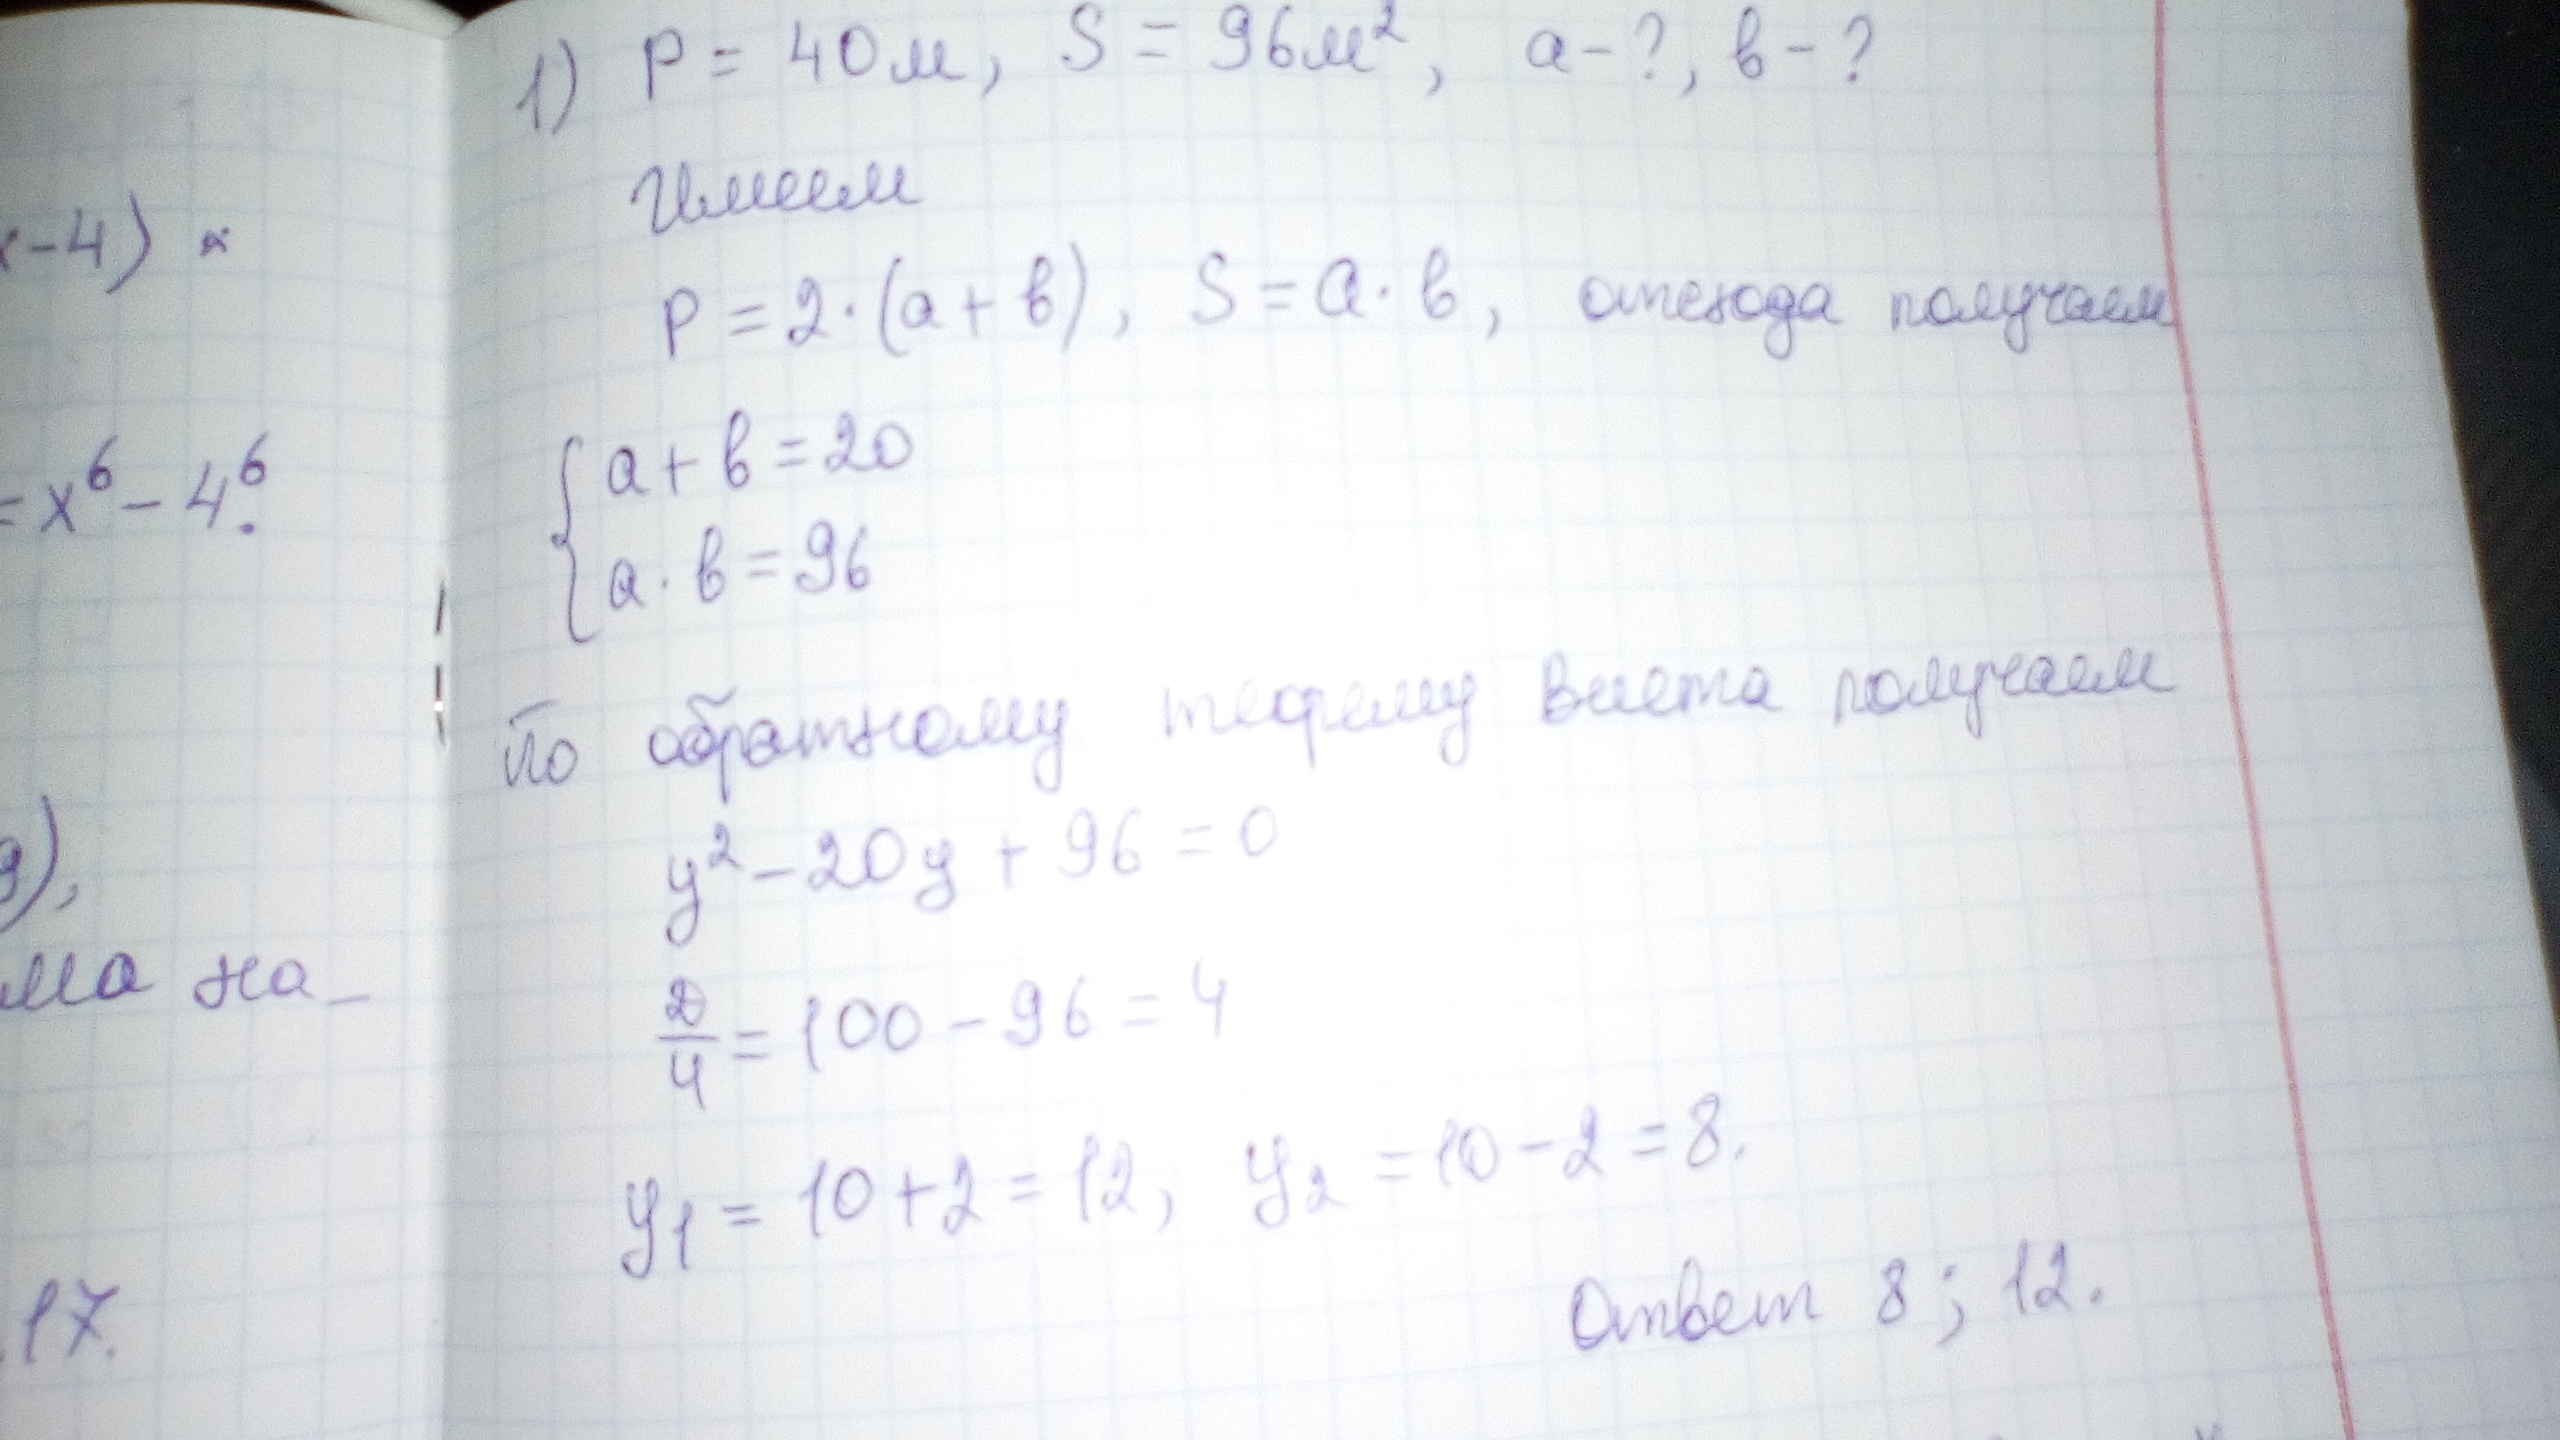 x-4) ×
= x⁶ - 4⁶.
9),
ма на_
17.
1) P = 40м, S = 96м², a - ?, в - ?
Имеем
P = 2·(a + в), S = a·в, отсюда получаем
{ a + в = 20
a · в = 96
По обратному теорему Виета получаем
y² - 20y + 96 = 0
D/4 = 100 - 96 = 4
y₁ = 10 + 2 = 12, y₂ = 10 - 2 = 8.
Ответ 8; 12.